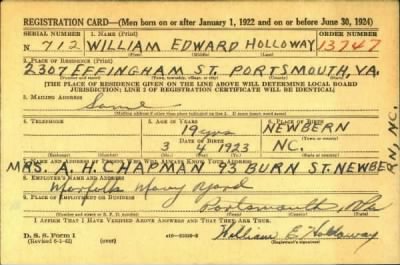 REGISTRATION CARD—(Men born on or after January 1, 1922 and on or before June 30, 1924)
SERIAL NUMBER 1. NAME (Print) ORDER NUMBER
N 712 WILLIAM EDWARD HOLLOWAY 13747
2. PLACE OF RESIDENCE (Print)
2307 EFFINGHAM ST. PORTSMOUTH, VA.
[THE PLACE OF RESIDENCE GIVEN ON THE LINE ABOVE WILL DETERMINE LOCAL BOARD
JURISDICTION; LINE 2 OF REGISTRATION CERTIFICATE WILL BE IDENTICAL]
3. MAILING ADDRESS
Same
4. TELEPHONE 5. AGE IN YEARS 6. PLACE OF BIRTH
19 yrs NEWBERN
DATE OF BIRTH
3 4 1923 NC.
7. NAME AND ADDRESS OF PERSON WHO WILL ALWAYS KNOW YOUR ADDRESS
MRS. A. H. CHAPMAN 93 BURN ST. NEWBERN, NC.
8. EMPLOYER'S NAME AND ADDRESS
Norfolk Navy Yard
9. PLACE OF EMPLOYMENT OR BUSINESS
Portsmouth, Va
I AFFIRM THAT I HAVE VERIFIED ABOVE ANSWERS AND THAT THEY ARE TRUE.
D. S. S. Form 1
(Revised 6-1-42) (over) William E. Holloway
(Registrant's signature)